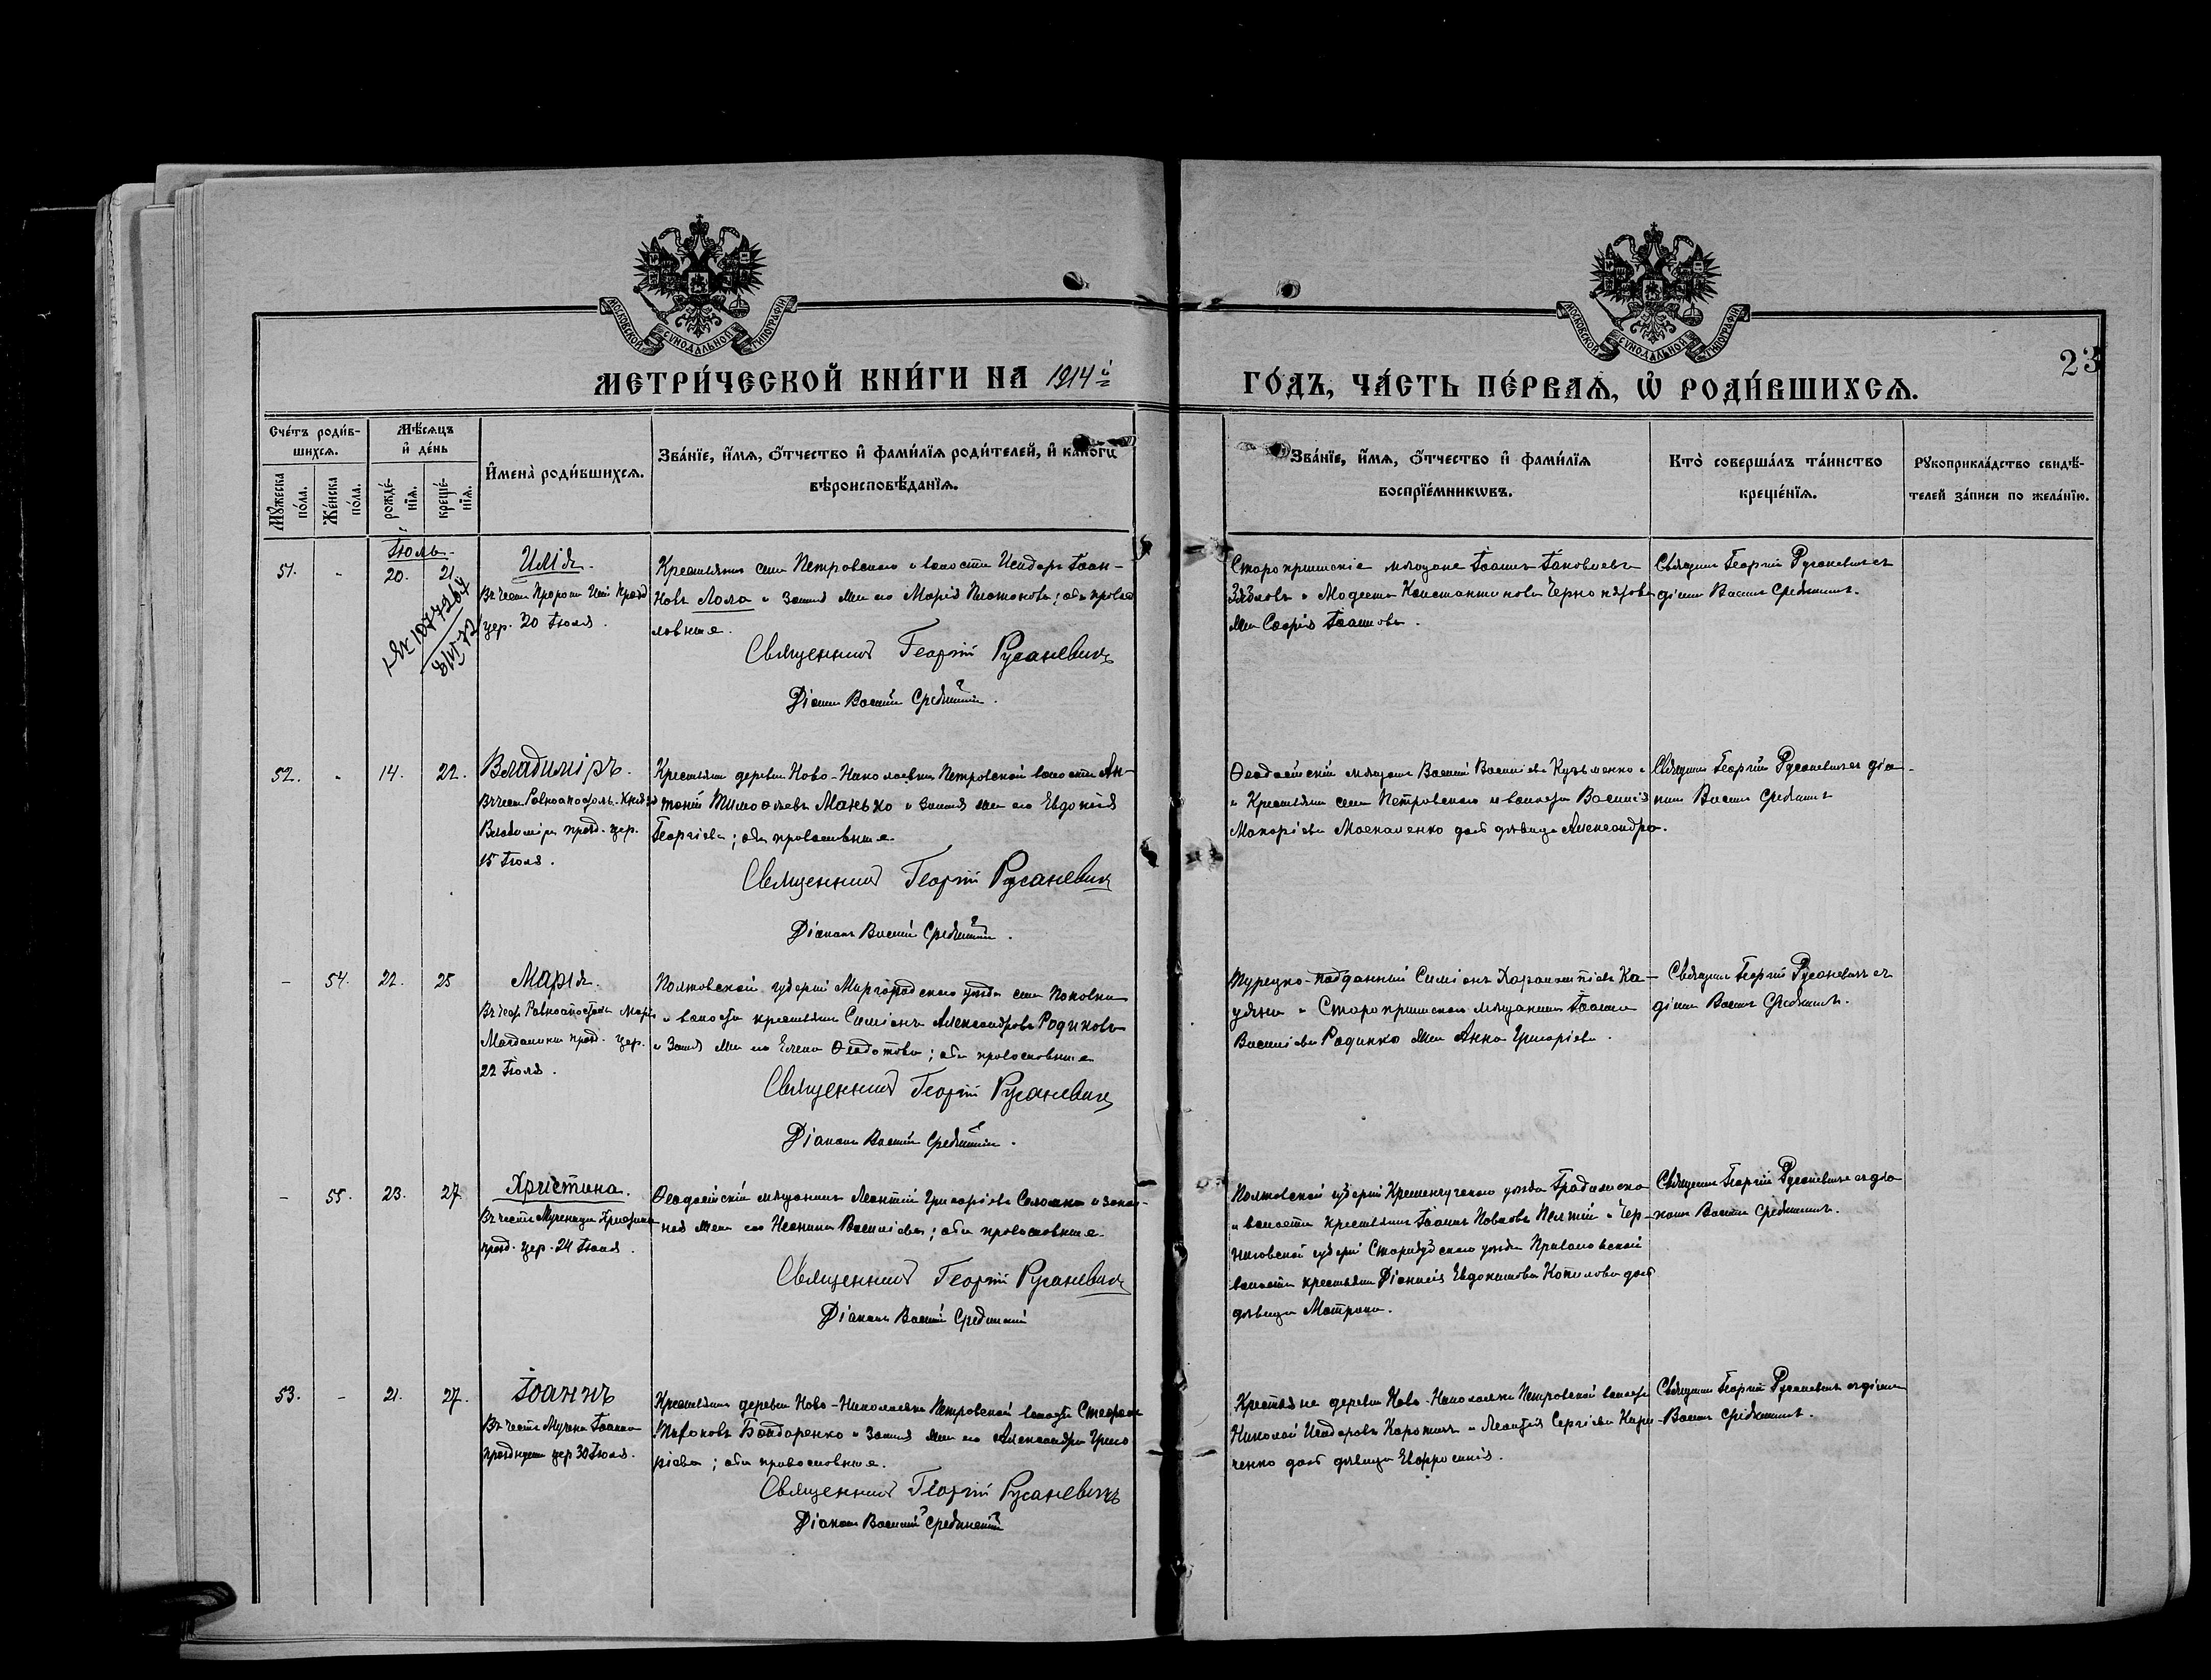 МОСКОВСКОЙ СѴНОДАЛЬНОЙ ТИПОГРАФІИ
МОСКОВСКОЙ СѴНОДАЛЬНОЙ ТИПОГРАФІИ
МЕТРИ́ЧЕСКОЙ КНИ́ГИ НА 1914й
ГО́ДЪ, ЧА́СТЬ ПЕ́РВАѦ, Ѡ҆ РОДИ́ВШИХСѦ.
23
Сче́тъ роди́в-
шихсѧ.
Мѣ́сѧцъ
и҆ де́нь
Мꙋ́жеска по́ла.
Же́нска по́ла.
рожде́-нїѧ.
креще́-нїѧ.
И҆мена̀ роди́вшихсѧ.
Зва́нїе, и҆́мѧ, ѻ҆́тчество и҆ фами́лїѧ роди́телей, и҆ како́гѡ
вѣроисповѣ́данїѧ.
Зва́нїе, и҆́мѧ, ѻ҆́тчество и҆ фами́лїѧ
воспрїе́мникѡвъ.
Кто̀ соверша́лъ та́инство
креще́нїѧ.
Рꙋкоприкла́дство свидѣ́-
телей за́писи по жела́нїю.
Іюль
51. - 20. 21.
Илія.
Въ честь Пророка Иліи Празд
цер. 20 Іюля.
Крестьянинъ села Петровскаго и волости Исидоръ Іоан-
новъ Лола и законная жена его Марія Платонова; оба право
славные.
Священникъ Георгій Русаневичъ
Діаконъ Василій Срединскій.
Старокрымскіе мѣщане Іоаннъ
Зяблов и Модеста Константинова
жена Софія Іоаннова.
Священникъ Георгій Русаневичъ съ
діакон Василіем Срединскимъ.
52. - 14. 22.
Владиміръ.
Въ честь Равноапостоль. Князя
Владиміра празд. цер.
15 Іюля.
Крестьянинъ деревни Ново-Николаевки Петровской волости Ан-
тоній Тимофеевъ Манько и законная жена его Евдокія
Георгіева; оба православные
Священникъ Георгій Русаневичъ
Діаконъ Василій Срединскій.
Ѳеодосійскій мѣщанинъ Василій Василіевъ Кузьменко
и Крестьянина села Петровскаго и волости Василія
Макаріева Москаленко дочь дѣвица Александра.
Священникъ Георгій Русаневичъ съ діа-
коном Василіем Срединскимъ
- 54. 22. 25
Марія.
Въ честь Равноапостольн Маріи
Магдалины празд. цер.
22 Іюля.
Полтавской губерніи Миргородскаго уѣзда села Поповки
и волости крестьянинъ Симеонъ Александровъ Родиковъ
и законная жена его Елена Ѳеодотова; оба православные
Священникъ Георгій Русаневичъ
Діаконъ Василій Срединскій.
Турецко-подданный Симіонъ Харалампіевъ Ка-
и Старокрымскаго мѣщанина Іоанна
Василіева Радинко жена Анна Григоріева.
Священникъ Георгій Русаневичъ съ
діакон Василіем Срединскимъ.
- 55. 23. 27.
Христина.
Въ честь Мученицы Христины
празд. цер. 24 Іюля.
Ѳеодосійскій мѣщанинъ Леонтій Григоріевъ Соломко и закон-
ная жена его Неонила Василіева; оба православные.
Священникъ Георгій Русаневичъ
Діаконъ Василій Срединскій
Полтавской губерніи Кременчугскаго уѣзда Градижска
и волости крестьянинъ Іоаннъ Павловъ и Чер-
ниговской губерніи Стародубскаго уѣзда
волости крестьянина Діонисія Евдокимова Копилова дочь
дѣвица Матрона.
Священникъ Георгій Русаневичъ съ діа-
коном Василіем Срединскимъ.
53. - 21. 27.
Іоаннъ
Въ честь Мучен Іоанна
празднуем цер 30 Іюля.
Крестьянинъ деревни Ново-Николаевки Петровской волости Стефанъ
Бондаренко и законная жена его Александра Григо
ріева; оба православные.
Священникъ Георгій Русаневичъ
Діаконъ Василій Срединскій
Крестьяне деревни Ново-Николаевки Петровской волости
Николай Исидоровъ и Сергіева Кири-
ченко дочь дѣвица Евфросинія.
Священникъ Георгій Русаневичъ съ діакон
Василіем Срединскимъ.